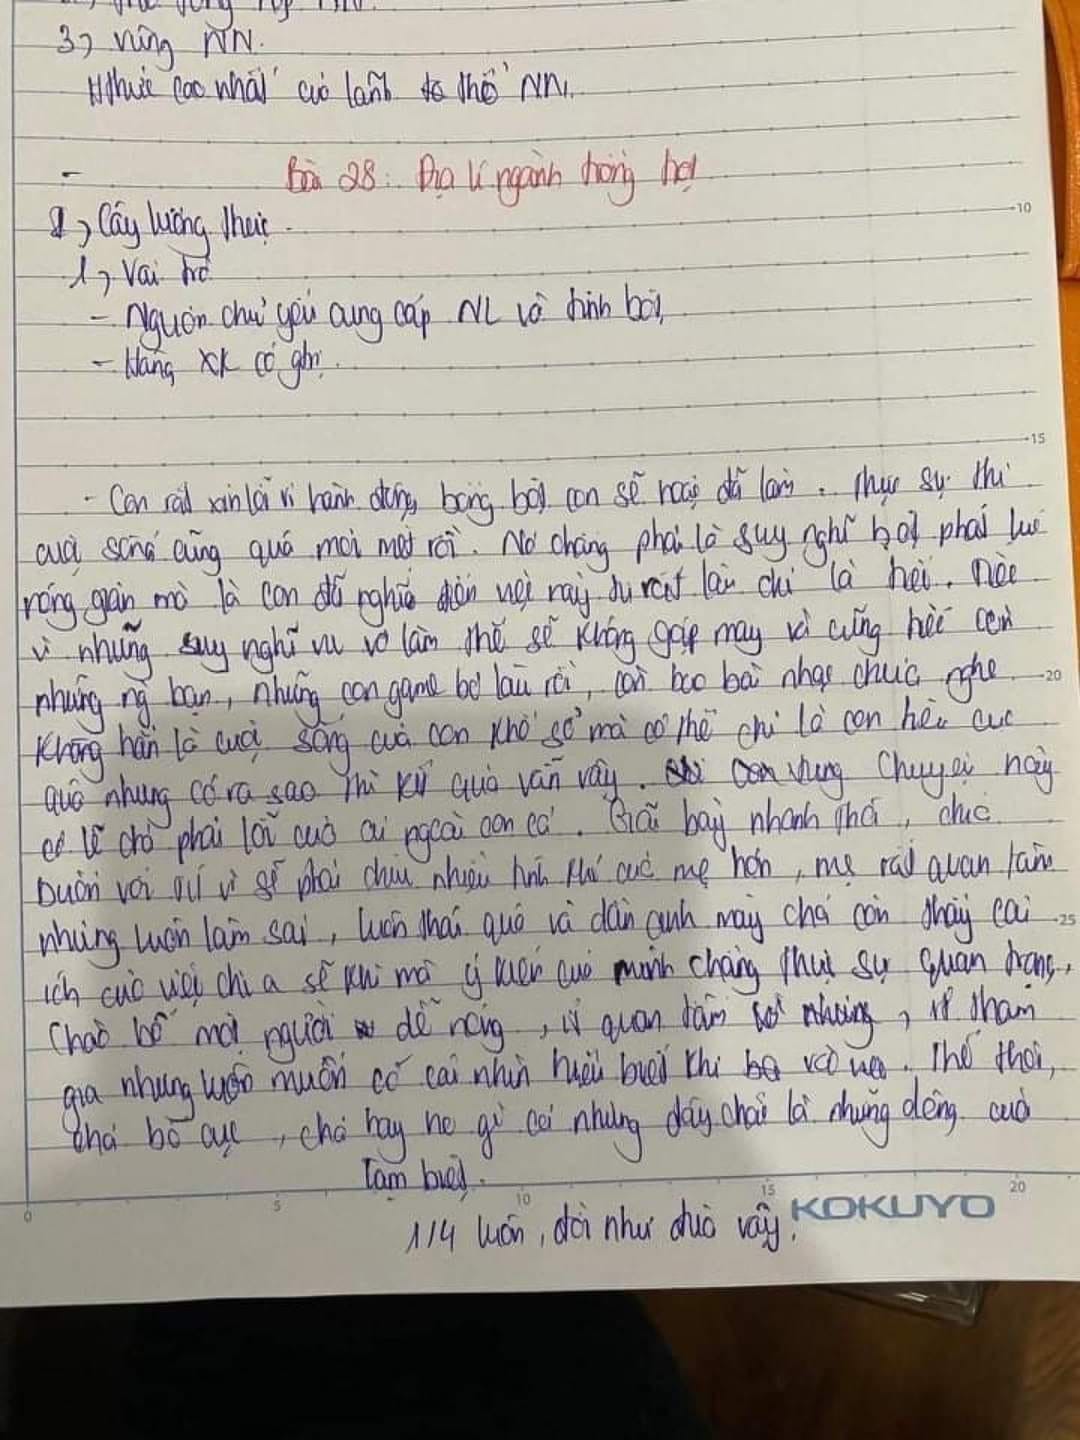 3, vùng NN.
Hthức cao nhất của lãnh thổ NN.
- Bài 28: Địa lí ngành trồng trọt
I, Cây lương thực.
1, Vai trò
- Nguồn chủ yếu cung cấp NL và tinh bột,
- Hàng XK có gtrị.
- Con rất xin lỗi vì hành động bồng bột con sẽ hoặc đã làm. Thực sự thì
cuộc sống cũng quá mỏi mệt rồi. Nó chẳng phải là suy nghĩ bột phát lúc
nóng giận mà là con đã nghĩ đến việc này từ rất lâu chỉ là hơi. Tiếc
vì những suy nghĩ vu vơ làm thế sẽ không gặp may và cũng tiếc con
những ng bạn, những con game bỏ lâu rồi, còn bao bài nhạc chưa nghe
Không hẳn là cuộc sống của con khổ sở mà có thể chỉ là con tiêu cực
quá nhưng có ra sao thì kết quả vẫn vậy. con Chuyện này
có lẽ chả phải lỗi của ai ngoài con cả. Giãi bày nhanh thôi, chắc
buồn với vì sẽ phải chịu nhiều tính khí của mẹ hơn, mẹ rất quan tâm
nhưng luôn làm sai, luôn thái quá và dần anh mày chả còn thấy cái
ích của việc chia sẻ khi mà ý kiến của mình chẳng thực sự quan trọng,
Chào bố một người dễ nóng, ít quan tâm nhưng, ít tham
gia nhưng luôn muốn có cái nhìn hiểu biết khi Thế thôi,
chả bố cục, chả hay ho gì cơ nhưng đây chắc là những dòng của
tạm biệt.
1/4 luôn, đời như đùa vậy.
10
15
20
25
0
5
10
15
20
KOKUYO